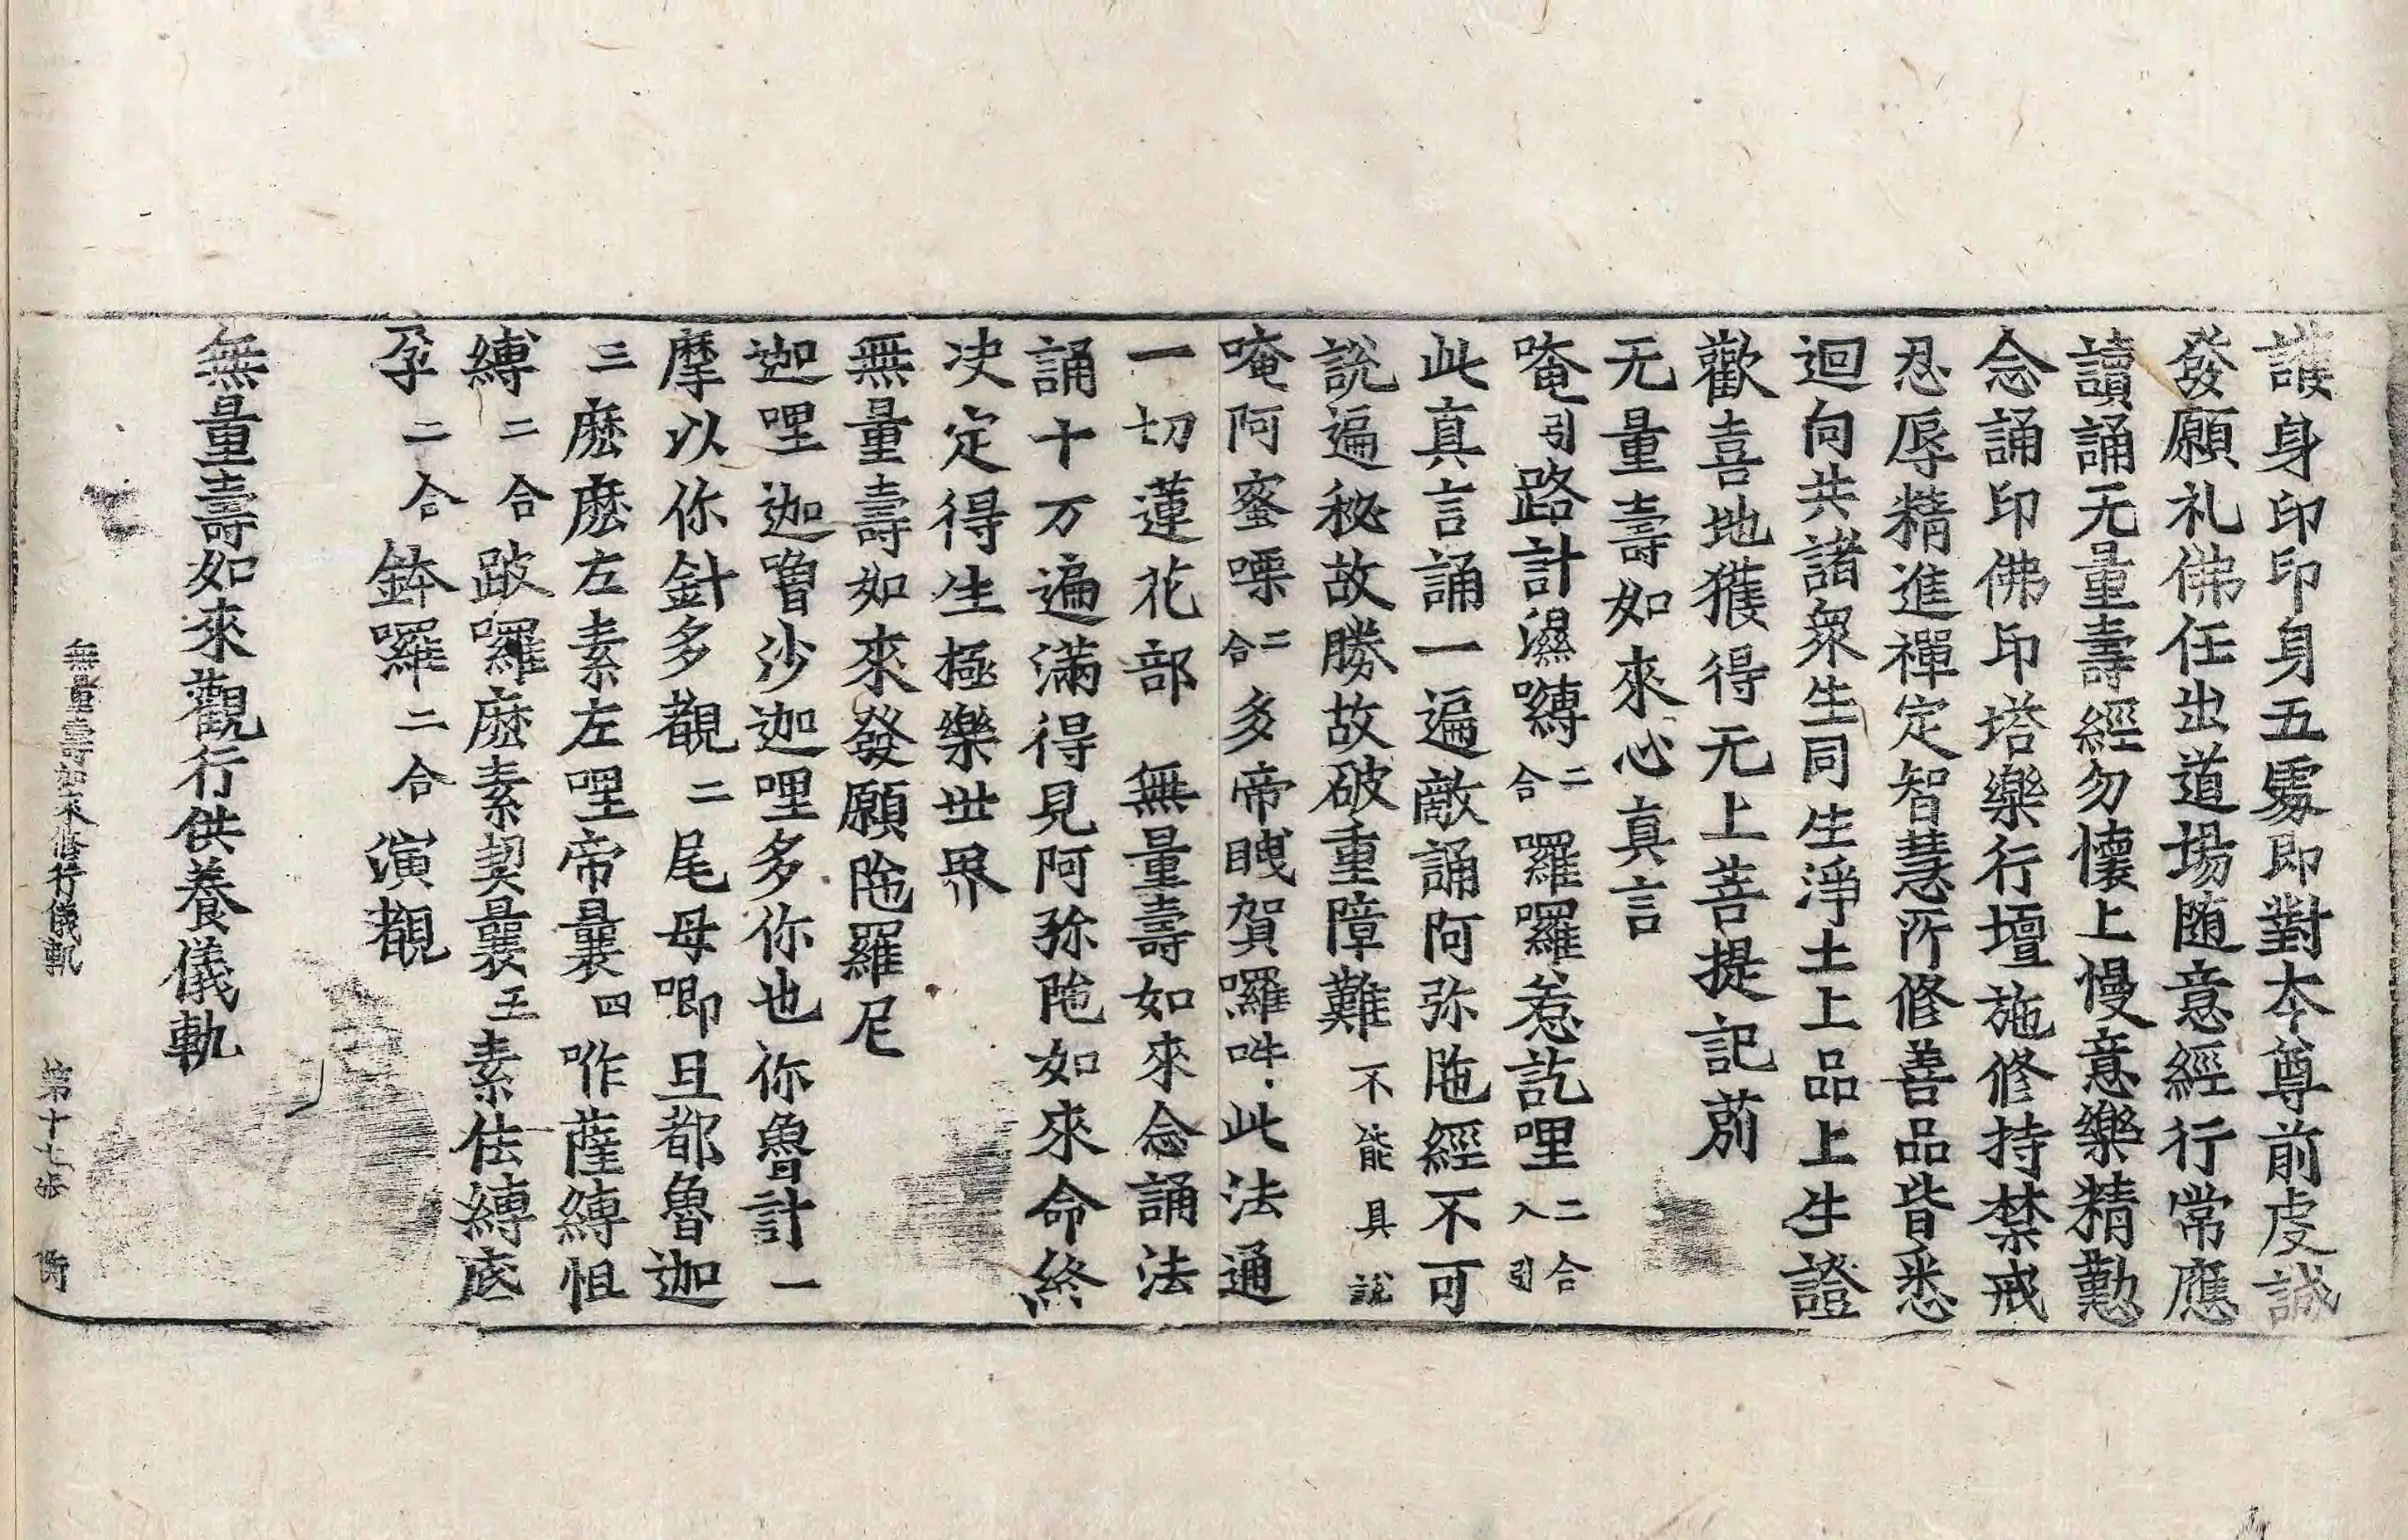 護身印印身五處即對夲尊前虔誠
發願礼佛任出道場随意經行常應
讀誦无量壽經勿懷上慢意樂精勤
念誦印佛印塔樂行壇施修持禁戒
忍辱精進禪定智慧所修善品皆悉
迴向共諸衆生同生淨土上品上生證
歡喜地獲得无上菩提記莂
无量壽如來心真言
唵引路計濕嚩二合羅囉惹訖哩二合入引
此真言誦一遍敵誦阿弥陁經不可
說遍秘故故勝故破重障難不能具說
唵阿蜜㗚二合多帝㗛賀囉吽此法通
一切蓮花部 無量壽如來念誦法
誦十万遍滿得見阿弥陁如來命終
决定得生極樂世界
無量壽如來發願陁羅尼
迦哩迦嚕沙迦哩多你也你魯計一
摩以你針多覩二尾母唧且都魯迦
三麽麽左素左哩帝曩四咋薩縛怛
縛二合跛囉麽素契曩五素佉縛底
孕二合鉢囉二合演覩
無量壽如來觀行供養儀軌
無量壽如來修行儀軌 第十七張